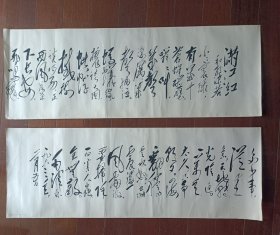 满江红
小小寰球
有几个
苍蝇碰壁
嗡嗡叫
几声
凄厉
几声抽泣
蚂蚁缘槐
夸大国
蚍蜉
撼树
谈何易
正
西风落叶
下长安
飞鸣镝
多少事
从来急
天地转
光阴迫
一万年
太久
只争朝夕
四海
翻腾
云水怒
五洲震荡
风雷激
要扫除一
切害人虫
全无敌
毛泽东